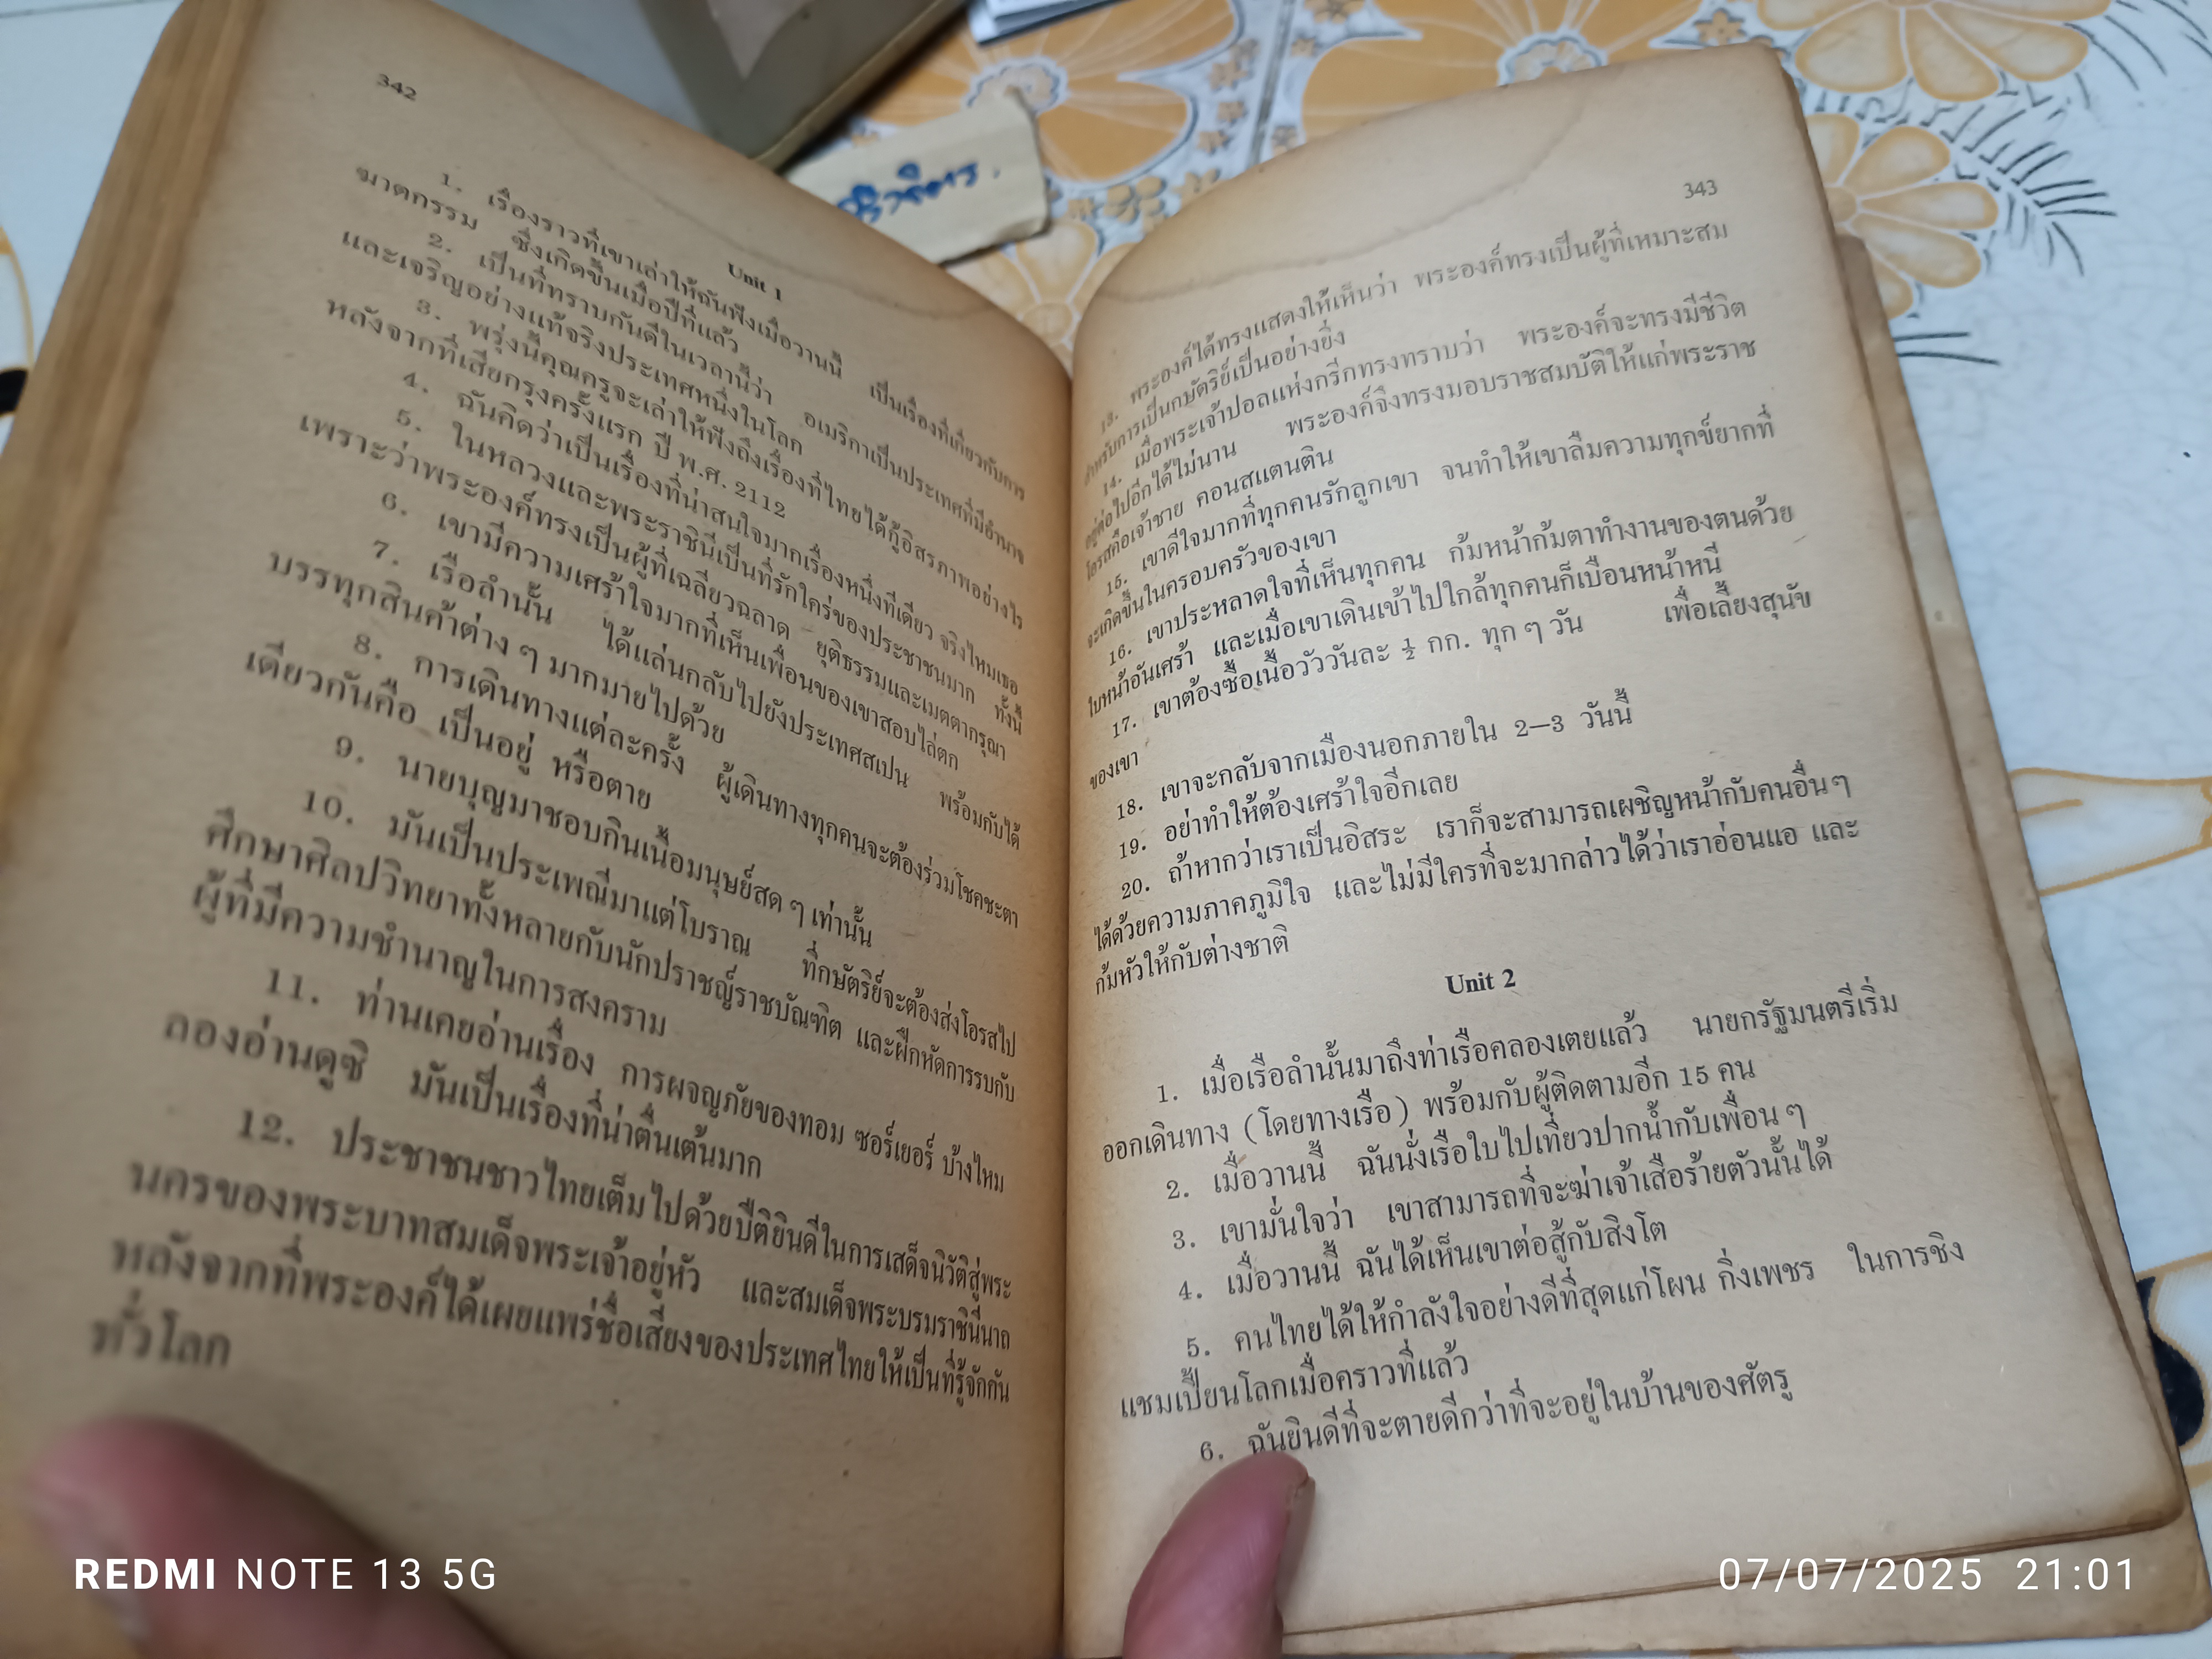 342
Unit 1
1. เรื่องราวที่เขาเล่าให้ฉันฟังเมื่อวานนี้ เป็นเรื่องที่เกี่ยวกับการ
ฆาตกรรม ซึ่งเกิดขึ้นเมื่อปีที่แล้ว
2. เป็นที่ทราบกันดีในเวลานี้ว่า อเมริกาเป็นประเทศที่มีอำนาจ
และเจริญอย่างแท้จริงประเทศหนึ่งในโลก
3. พรุ่งนี้คุณครูจะเล่าให้ฟังถึงเรื่องที่ไทยได้กู้อิสรภาพอย่างไร
หลังจากที่เสียกรุงครั้งแรก ปี พ.ศ. 2112
4. ฉันคิดว่าเป็นเรื่องที่น่าสนใจมากเรื่องหนึ่งทีเดียว จริงไหมเธอ
5. ในหลวงและพระราชินีเป็นที่รักใคร่ของประชาชนมาก ทั้งนี้
เพราะว่าพระองค์ทรงเป็นผู้ที่เฉลียวฉลาด ยุติธรรมและเมตตากรุณา
6. เขามีความเศร้าใจมากที่เห็นเพื่อนของเขาสอบไล่ตก
7. เรือลำนั้น ได้แล่นกลับไปยังประเทศสเปน พร้อมกับได้
บรรทุกสินค้าต่าง ๆ มากมายไปด้วย
8. การเดินทางแต่ละครั้ง ผู้เดินทางทุกคนจะต้องร่วมโชคชะตา
เดียวกันคือ เป็นอยู่ หรือตาย
9. นายบุญมาชอบกินเนื้อมนุษย์สด ๆ เท่านั้น
10. มันเป็นประเพณีมาแต่โบราณ ที่กษัตริย์จะต้องส่งโอรสไป
ศึกษาศิลปวิทยาทั้งหลายกับนักปราชญ์ราชบัณฑิต และฝึกหัดการรบกับ
ผู้ที่มีความชำนาญในการสงคราม
11. ท่านเคยอ่านเรื่อง การผจญภัยของทอม ซอร์เยอร์ บ้างไหม
ลองอ่านดูซิ มันเป็นเรื่องที่น่าตื่นเต้นมาก
12. ประชาชนชาวไทยเต็มไปด้วยปีติยินดีในการเสด็จนิวัติสู่พระ
นครของพระบาทสมเด็จพระเจ้าอยู่หัว และสมเด็จพระบรมราชินีนาถ
หลังจากที่พระองค์ได้เผยแพร่ชื่อเสียงของประเทศไทยให้เป็นที่รู้จักกัน
ทั่วโลก
343
13. พระองค์ได้ทรงแสดงให้เห็นว่า พระองค์ทรงเป็นผู้ที่เหมาะสม
สำหรับการเป็นกษัตริย์เป็นอย่างยิ่ง
14. เมื่อพระเจ้าปอลแห่งกรีกทรงทราบว่า พระองค์จะทรงมีชีวิต
อยู่ต่อไปอีกได้ไม่นาน พระองค์จึงทรงมอบราชสมบัติให้แก่พระราช
โอรสคือเจ้าชาย คอนสแตนติน
15. เขาดีใจมากที่ทุกคนรักลูกเขา จนทำให้เขาลืมความทุกข์ยากที่
จะเกิดขึ้นในครอบครัวของเขา
16. เขาประหลาดใจที่เห็นทุกคน ก้มหน้าก้มตาทำงานของตนด้วย
ใบหน้าอันเศร้า และเมื่อเขาเดินเข้าไปใกล้ทุกคนก็เบือนหน้าหนี
17. เขาต้องซื้อเนื้อวัววันละ ½ กก. ทุก ๆ วัน เพื่อเลี้ยงสุนัข
ของเขา
18. เขาจะกลับจากเมืองนอกภายใน 2—3 วันนี้
19. อย่าทำให้ต้องเศร้าใจอีกเลย
20. ถ้าหากว่าเราเป็นอิสระ เราก็จะสามารถเผชิญหน้ากับคนอื่นๆ
ได้ด้วยความภาคภูมิใจ และไม่มีใครที่จะมากล่าวได้ว่าเราอ่อนแอ และ
ก้มหัวให้กับต่างชาติ
Unit 2
1. เมื่อเรือลำนั้นมาถึงท่าเรือคลองเตยแล้ว นายกรัฐมนตรีเริ่ม
ออกเดินทาง (โดยทางเรือ) พร้อมกับผู้ติดตามอีก 15 คน
2. เมื่อวานนี้ ฉันนั่งเรือใบไปเที่ยวปากน้ำกับเพื่อน ๆ
3. เขามั่นใจว่า เขาสามารถที่จะฆ่าเจ้าเสือร้ายตัวนั้นได้
4. เมื่อวานนี้ ฉันได้เห็นเขาต่อสู้กับสิงโต
5. คนไทยได้ให้กำลังใจอย่างดีที่สุดแก่โผน กิ่งเพชร ในการชิง
แชมเปี้ยนโลกเมื่อคราวที่แล้ว
6. ฉันยินดีที่จะตายดีกว่าที่จะอยู่ในบ้านของศัตรู
REDMI NOTE 13 5G
07/07/2025 21:01